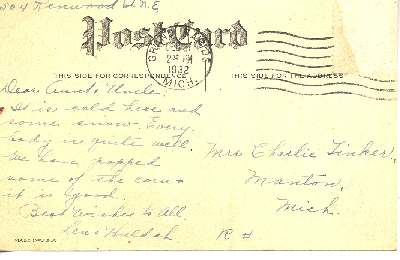 Kenwood St. N.E
Post Card
1932
MICH.
THIS SIDE FOR CORRESPONDENCE
THIS SIDE FOR THE ADDRESS
Dear Aunt & Uncle.
It is cold here and
some snow. Every
body is quite well.
We have popped
some of the corn &
it is good.
Best Wishes to All.
Levi Huldah
Mrs Charlie Tinker,
Manton,
Mich.
R #
MADE IN U.S.A.